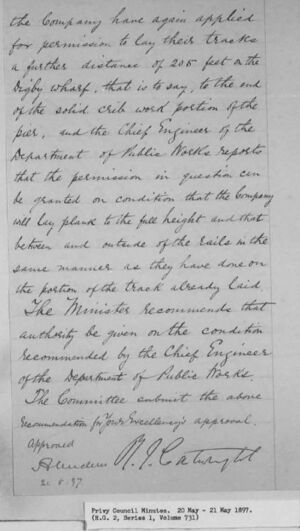 the Company have again applied
for permission to lay their tracks
a further distance of 205 feet on the
Digby wharf, that is to say, to the end
of the solid crib word portion of the
pier, and the Chief Engineer of the
Department of Public Works reports
that the permission in question can
be granted on condition that the Company
will lay plank to the full height and that
between and outside of the rails in the
same manner as they have done on
the portion of the track already laid.
The Minister recommends that
authority be given on the condition
recommended by the Chief Engineer
of the Department of Public Works.
The Committee submit the above
recommendation for Your Excellency's approval.
Approved
Aberdeen R. J. Cartwright
21.5.97
Privy Council Minutes. 20 May - 21 May 1897.
(R.G. 2, Series 1, Volume 731)